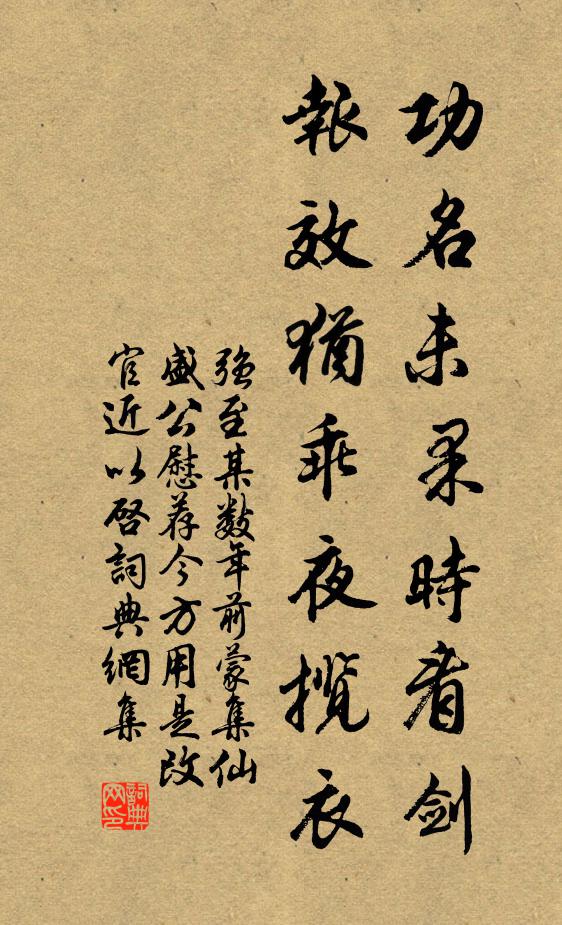 功名未果時看劍
報效猶乖夜攬衣
強至某數年前蒙集仙
盛公慰荐今方用是改
官近以啓詞典網集
詞典网印